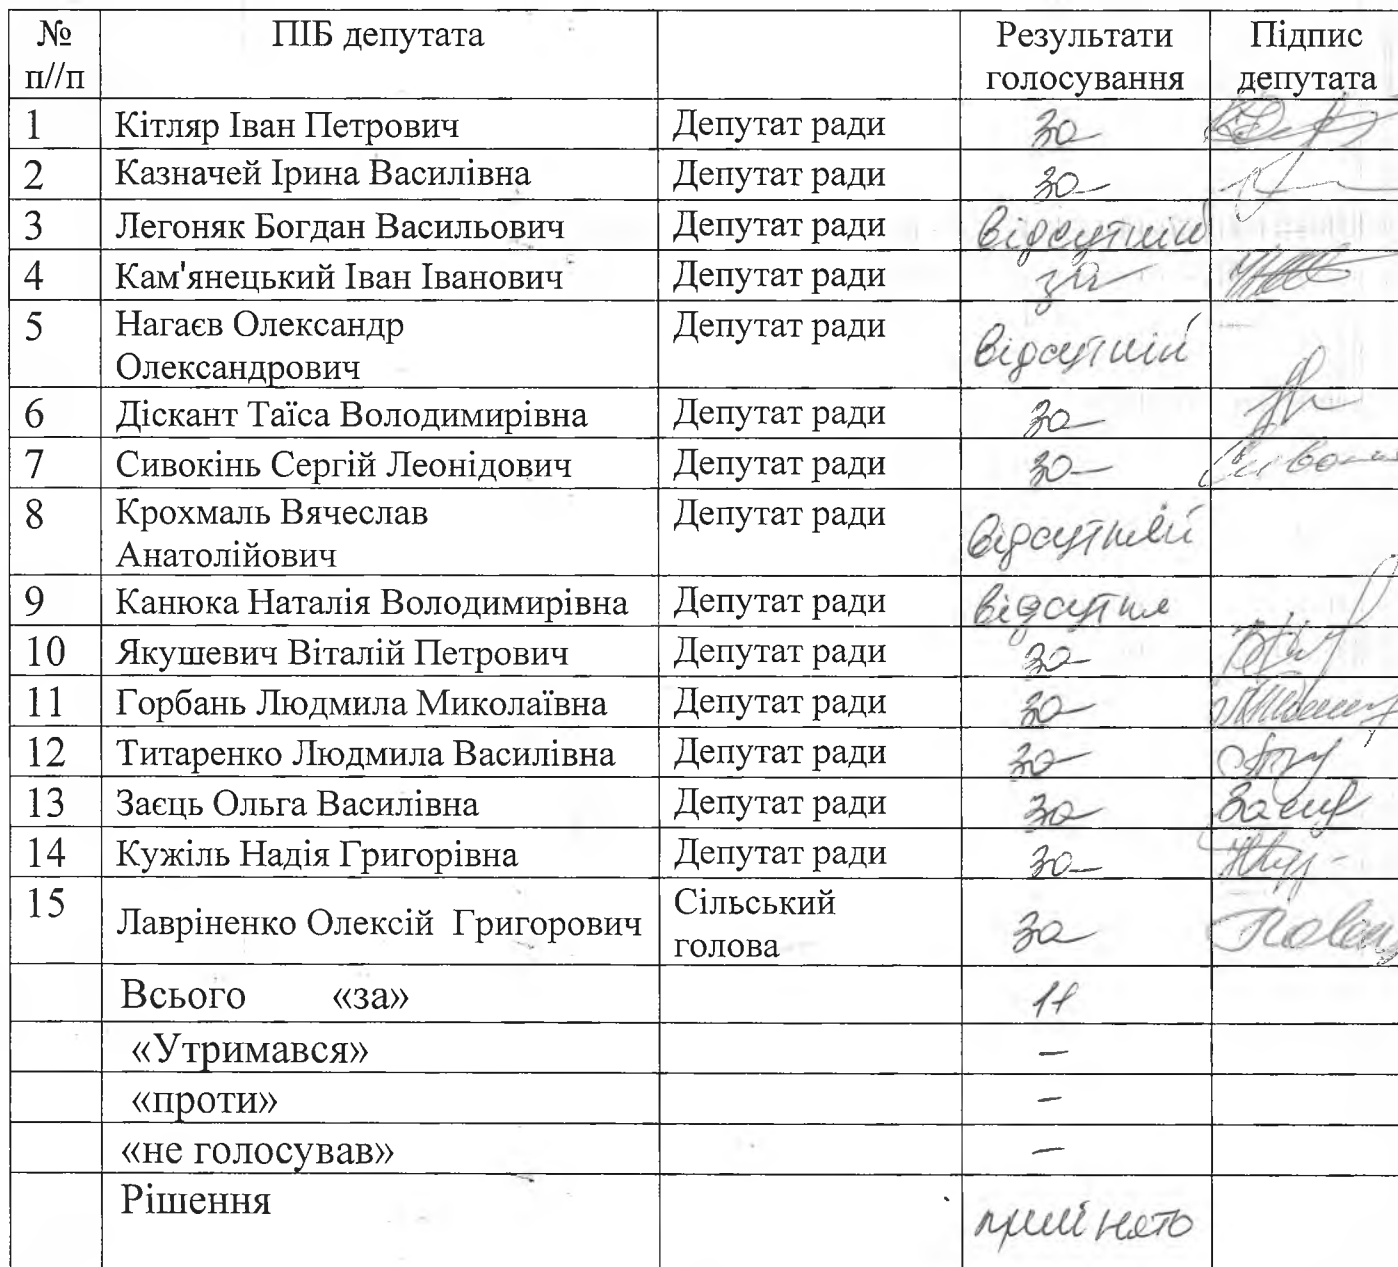 № п//п ПІБ депутата Результати голосування Підпис депутата
1 Кітляр Іван Петрович Депутат ради За
2 Казначей Ірина Василівна Депутат ради За
3 Легоняк Богдан Васильович Депутат ради Відсутній
4 Кам'янецький Іван Іванович Депутат ради за
5 Нагаєв Олександр Олександрович Депутат ради Відсутній
6 Діскант Таїса Володимирівна Депутат ради За
7 Сивокінь Сергій Леонідович Депутат ради За
8 Крохмаль Вячеслав Анатолійович Депутат ради Відсутній
9 Канюка Наталія Володимирівна Депутат ради Відсутня
10 Якушевич Віталій Петрович Депутат ради За
11 Горбань Людмила Миколаївна Депутат ради За
12 Титаренко Людмила Василівна Депутат ради За
13 Заєць Ольга Василівна Депутат ради За
14 Кужіль Надія Григорівна Депутат ради За
15 Лавріненко Олексій Григорович Сільський голова За
Всього «за» 11
«Утримався» –
«проти» –
«не голосував» –
Рішення прийнято